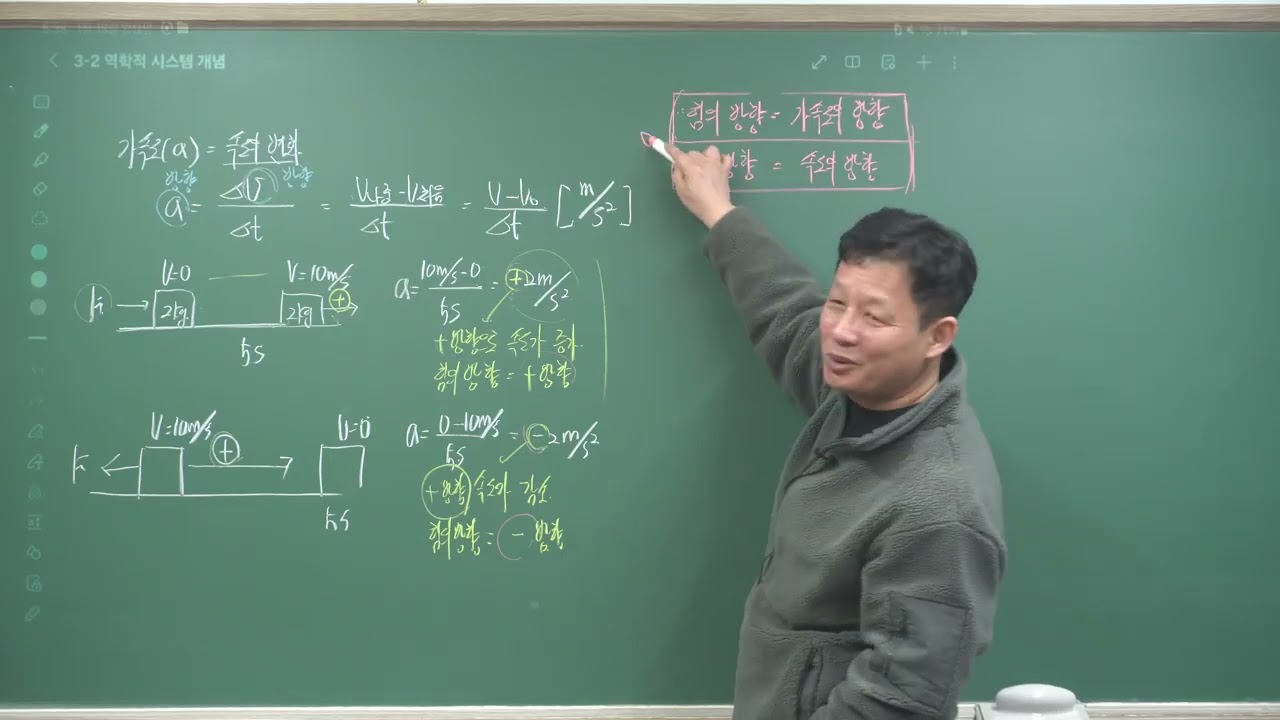 3-2 역학적 시스템 개념
힘의 방향 = 가속도의 방향
방향 = 속도의 방향
가속도(a) = 속도의 변화
방향 방향
a = ΔV/Δt = V나중-V처음/Δt = V-V₀/Δt [m/s²]
V=0 V=10m/s
2kg 2kg +
5s
a = 10m/s-0/5s = +2m/s²
+방향으로 속도가 증가
힘의 방향 = +방향
V=10m/s + V=0
5s
a = 0-10m/s/5s = -2m/s²
+방향 속도가 감소
힘의방향 = - 방향